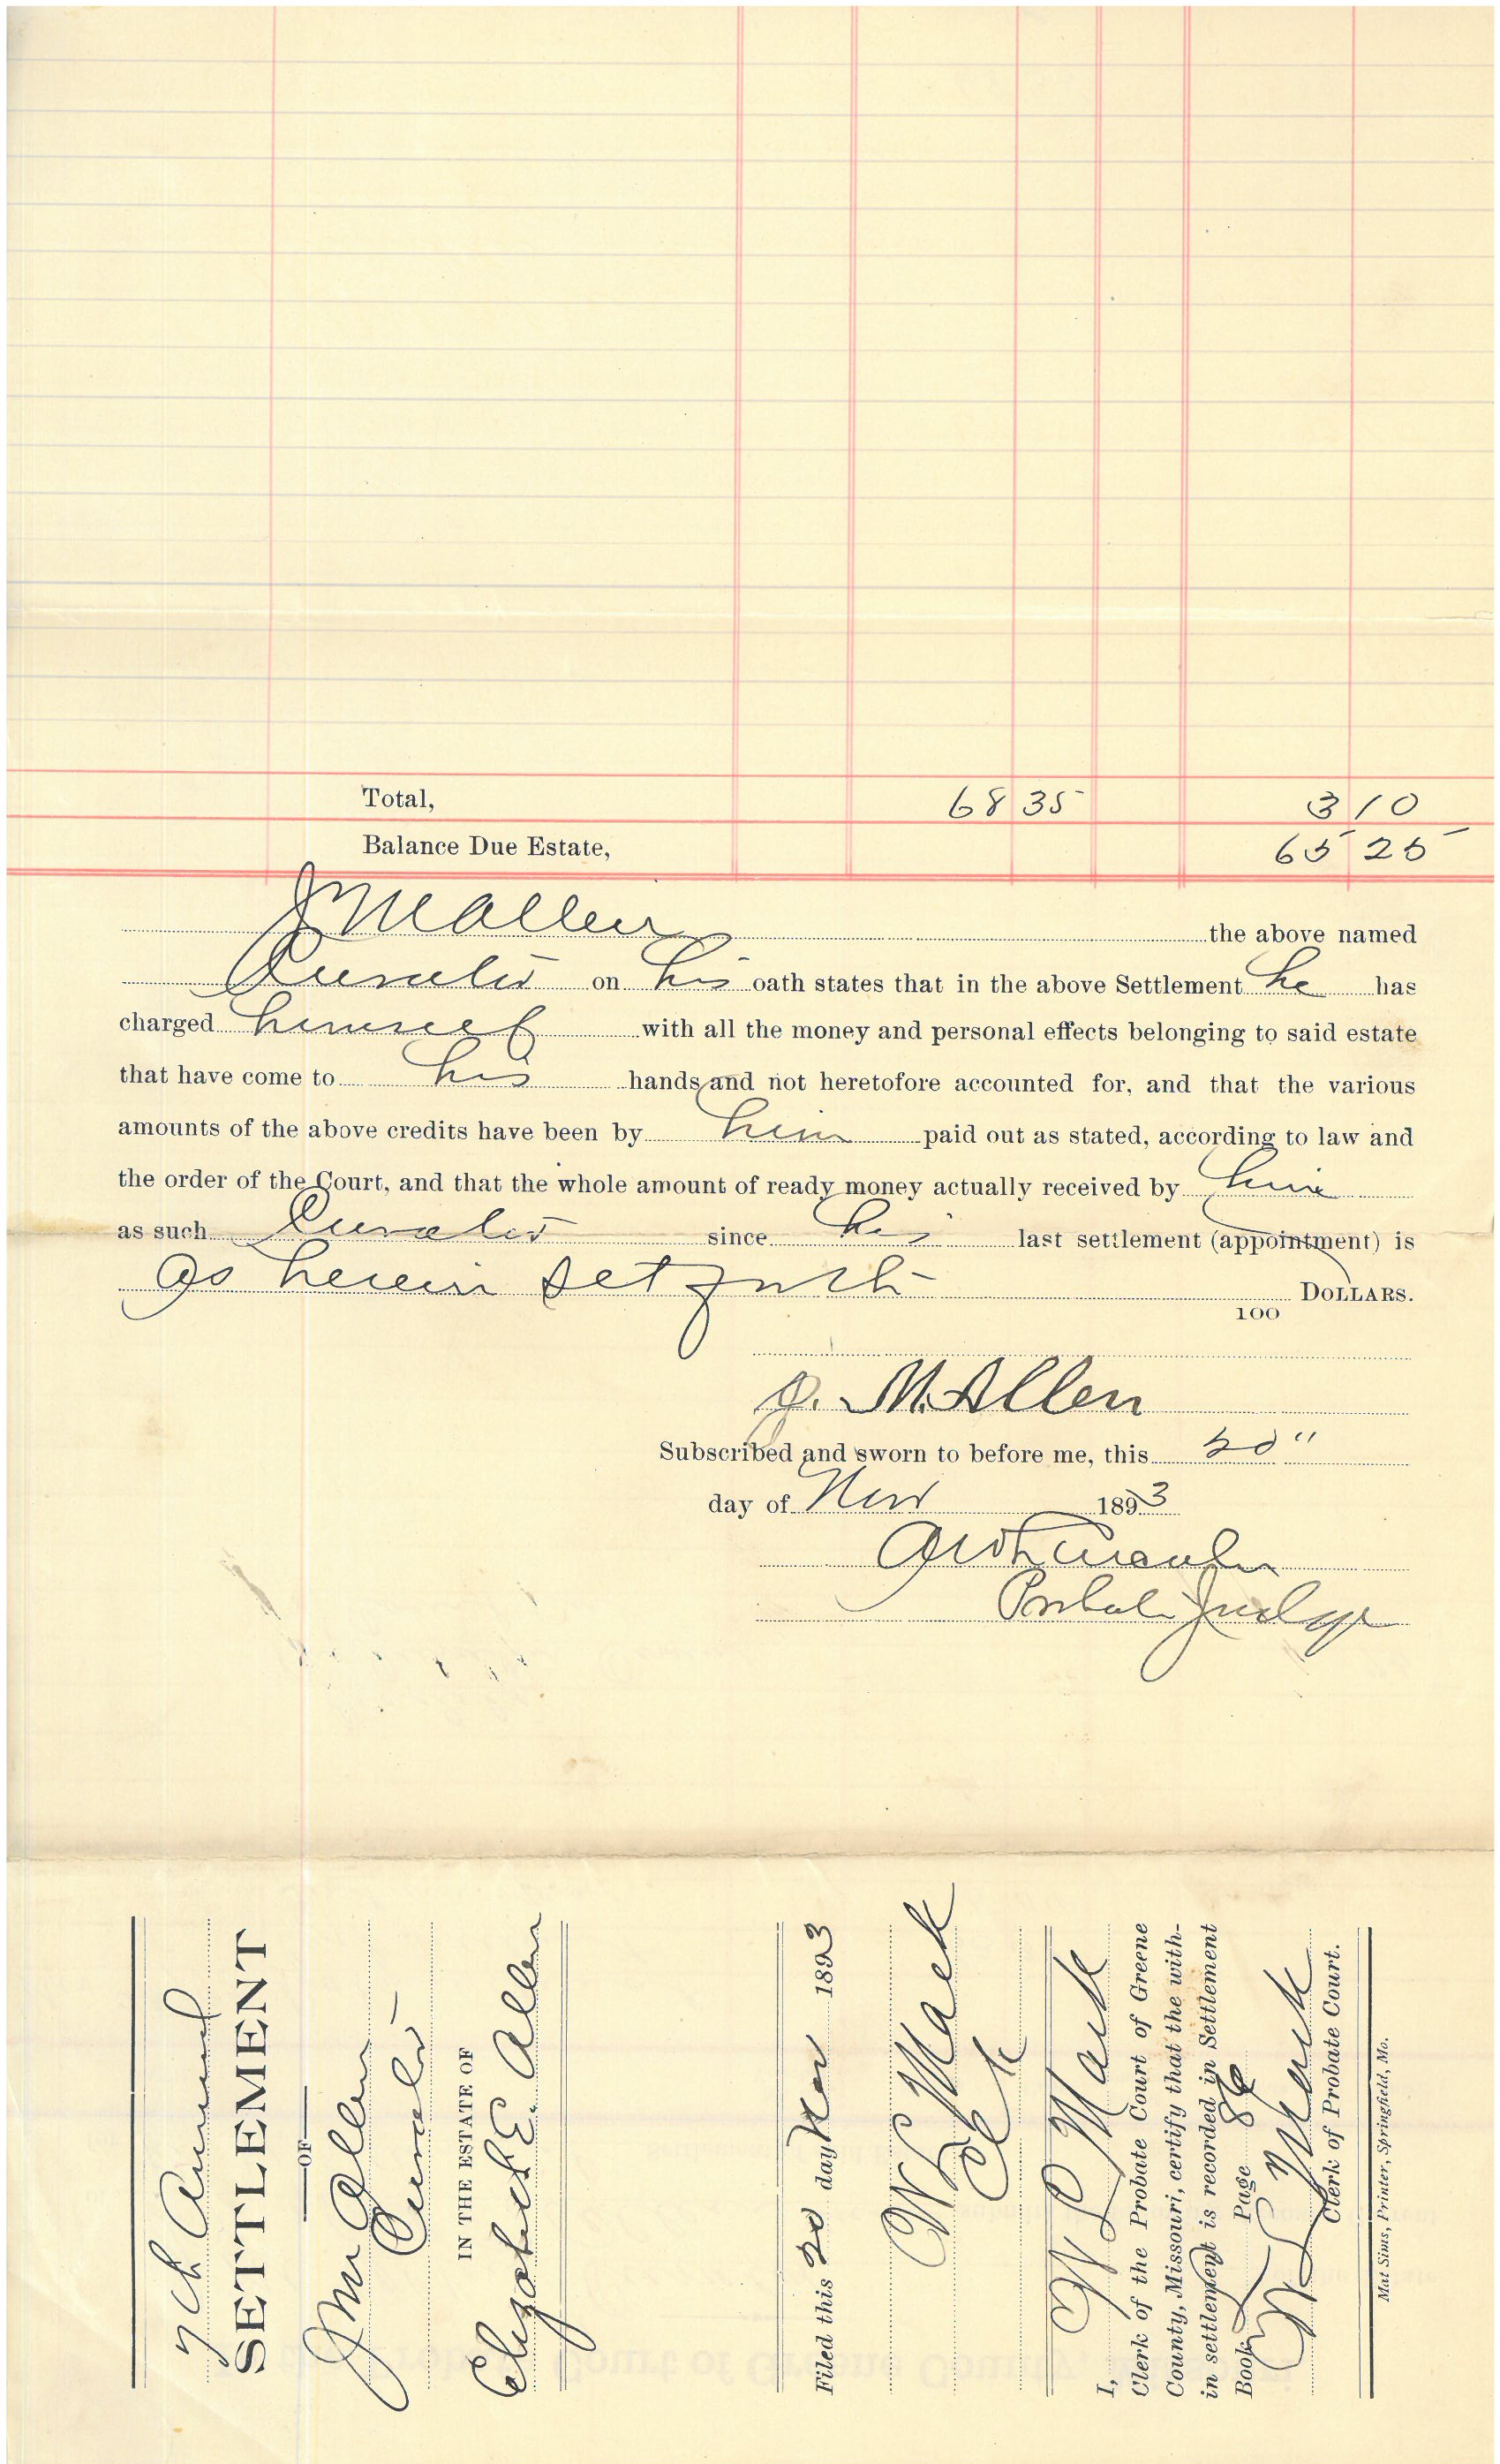 Total, 68 35 3 10
Balance Due Estate, 65 25
J M Allen the above named
Curator on his oath states that in the above Settlement he has
charged himself with all the money and personal effects belonging to said estate
that have come to his hands and not heretofore accounted for, and that the various
amounts of the above credits have been by him paid out as stated, according to law and
the order of the Court, and that the whole amount of ready money actually received by him
as such Curator since his last settlement (appointment) is
as herein set forth DOLLARS.
100
J. M. Allen
Subscribed and sworn to before me, this 20"
day of Nov 1893
Probate Judge
7th Annual
SETTLEMENT
OF
J M Allen
Curator
IN THE ESTATE OF
Elizabeth E. Allen
Filed this 20 day Nov 1893
W L Mack
Clk
I, W L Mack
Clerk of the Probate Court of Greene
County, Missouri, certify that the with-
in settlement is recorded in Settlement
Book Page 86
W L Mack
Clerk of Probate Court.
Mat Sims, Printer, Springfield, Mo.